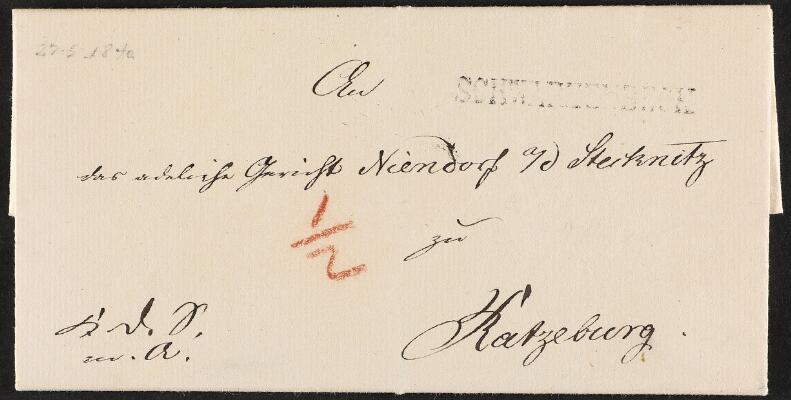 27-5-1840
An
SCHWARZENBECK
das adeliche Gericht Niendorf a/d Stecknitz
1/2
zu
Ratzeburg.
d. S.
m. A.